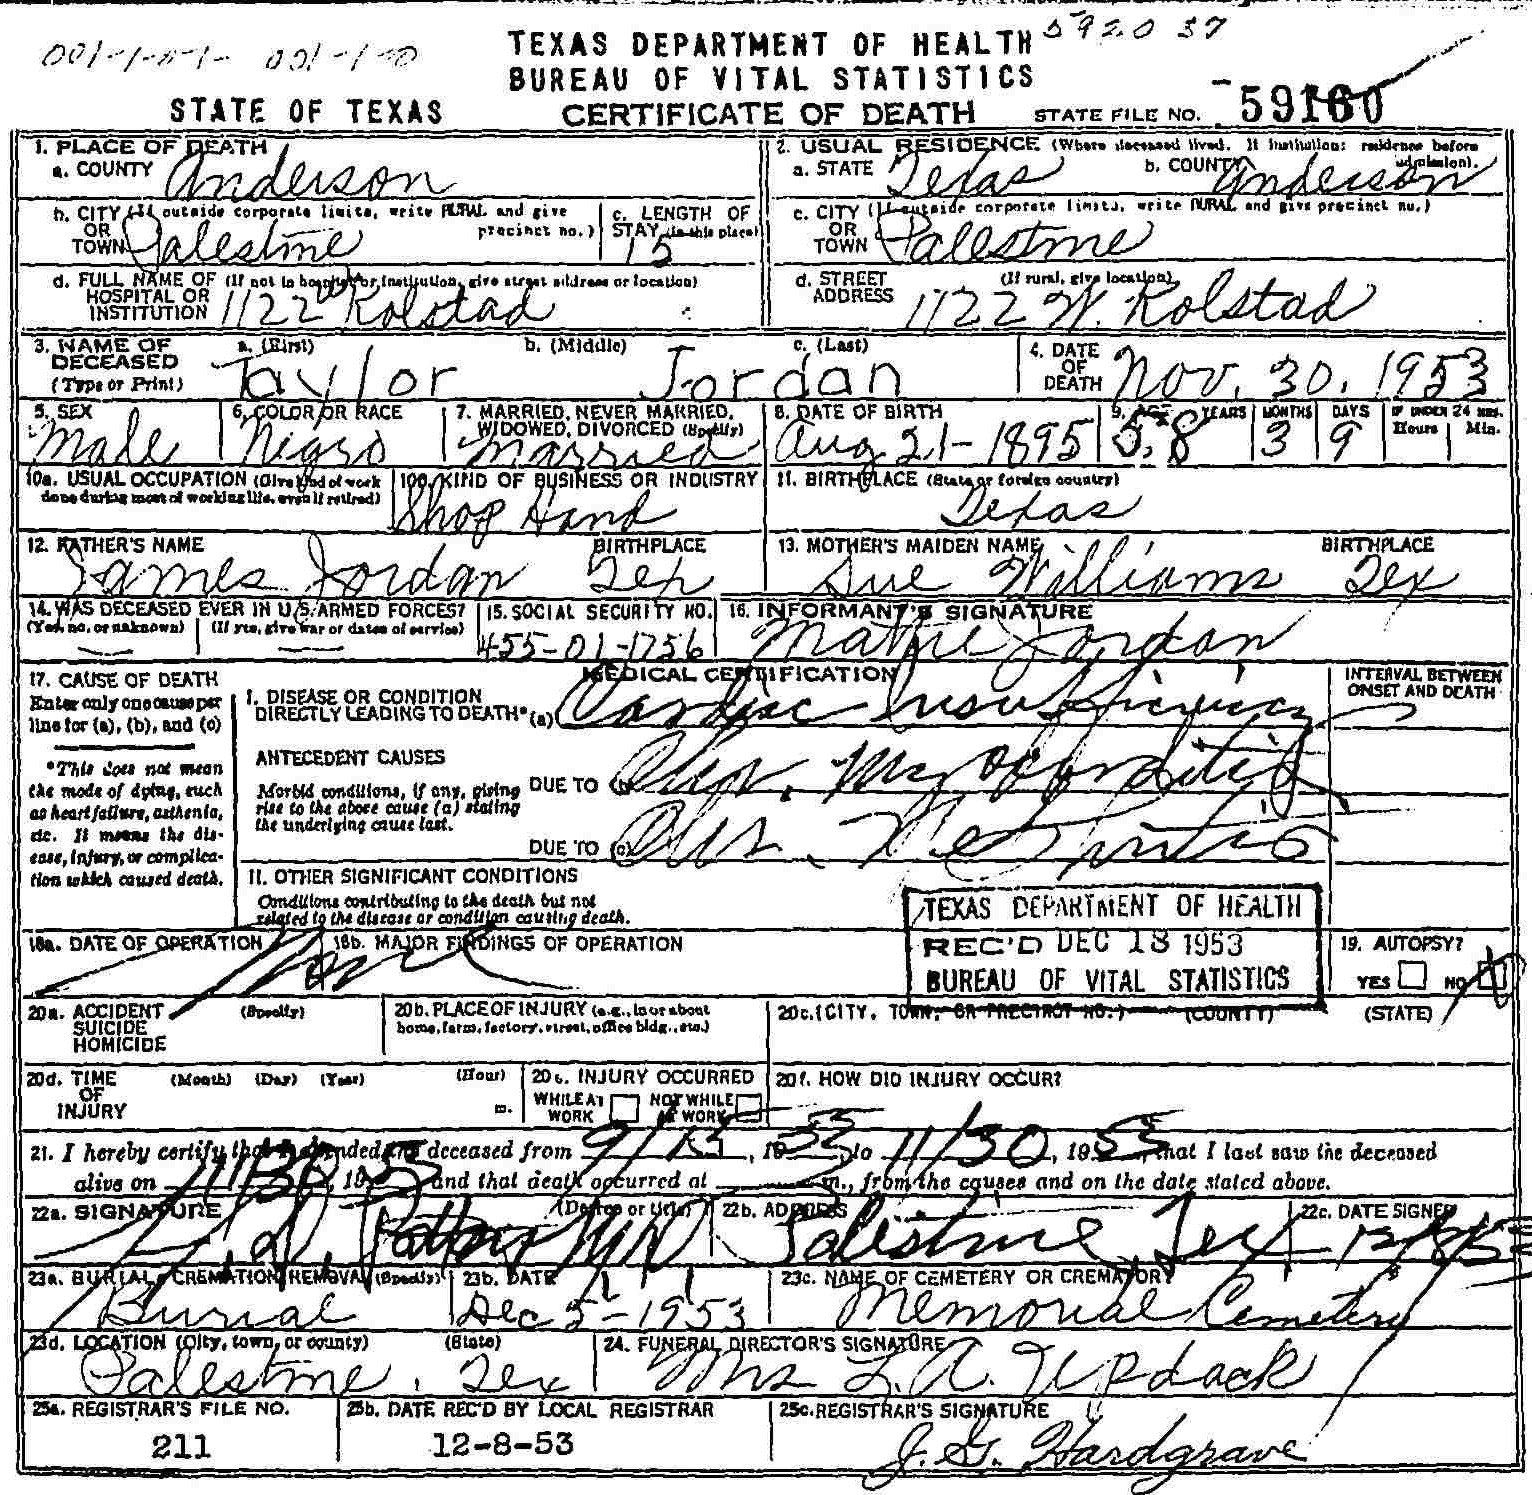 001-1-0-1- 001-1-0
592037
TEXAS DEPARTMENT OF HEALTH
BUREAU OF VITAL STATISTICS
STATE OF TEXAS CERTIFICATE OF DEATH STATE FILE NO. 59160
1. PLACE OF DEATH
a. COUNTY Anderson
2. USUAL RESIDENCE (Where deceased lived. If institution: residence before admission).
a. STATE Texas b. COUNTY Anderson
b. CITY (If outside corporate limits, write RURAL and give precinct no.) OR TOWN Palestine
c. LENGTH OF STAY (in this place) 15
c. CITY (If outside corporate limits, write RURAL and give precinct no.) OR TOWN Palestine
d. FULL NAME OF HOSPITAL OR INSTITUTION (If not in hospital or institution, give street address or location) 1122 W Kolstad
d. STREET ADDRESS (If rural, give location) 1122 W. Kolstad
3. NAME OF DECEASED (Type or Print) a. (First) Taylor b. (Middle) c. (Last) Jordan
4. DATE OF DEATH Nov. 30. 1953
5. SEX Male
6. COLOR OR RACE Negro
7. MARRIED, NEVER MARRIED, WIDOWED, DIVORCED (Specify) Married
8. DATE OF BIRTH Aug 21-1895
9. AGE YEARS 58 MONTHS 3 DAYS 9 IF UNDER 24 HRS. Hours Min.
10a. USUAL OCCUPATION (Give kind of work done during most of working life, even if retired)
10b. KIND OF BUSINESS OR INDUSTRY Shop Hand
11. BIRTHPLACE (State or foreign country) Texas
12. FATHER'S NAME James Jordan BIRTHPLACE Tex
13. MOTHER'S MAIDEN NAME Sue Williams BIRTHPLACE Tex
14. WAS DECEASED EVER IN U.S. ARMED FORCES? (Yes, no, or unknown) (If yes, give war or dates of service)
15. SOCIAL SECURITY NO. 455-01-1756
16. INFORMANT'S SIGNATURE Mattie Jordan
MEDICAL CERTIFICATION
INTERVAL BETWEEN ONSET AND DEATH
17. CAUSE OF DEATH
Enter only one cause per line for (a), (b), and (c)
*This does not mean the mode of dying, such as heart failure, asthenia, etc. It means the disease, injury, or complication which caused death.
I. DISEASE OR CONDITION DIRECTLY LEADING TO DEATH* (a) Cardiac Insufficiency
ANTECEDENT CAUSES
Morbid conditions, if any, giving rise to the above cause (a) stating the underlying cause last.
DUE TO (b) Chr. Myocarditis
DUE TO (c) Chr. Nephritis
II. OTHER SIGNIFICANT CONDITIONS
Conditions contributing to the death but not related to the disease or condition causing death.
TEXAS DEPARTMENT OF HEALTH
REC'D DEC 18 1953
BUREAU OF VITAL STATISTICS
18a. DATE OF OPERATION None
18b. MAJOR FINDINGS OF OPERATION
19. AUTOPSY? YES NO
20a. ACCIDENT SUICIDE HOMICIDE (Specify)
20b. PLACE OF INJURY (e.g., in or about home, farm, factory, street, office bldg., etc.)
20c. (CITY, TOWN, OR PRECINCT NO.) (COUNTY) (STATE)
20d. TIME OF INJURY (Month) (Day) (Year) (Hour) m.
20e. INJURY OCCURRED WHILE AT WORK NOT WHILE AT WORK
20f. HOW DID INJURY OCCUR?
21. I hereby certify that I attended the deceased from 9/15, 1953, to 11/30, 1953, that I last saw the deceased
alive on 11/30, 1953 and that death occurred at m., from the causes and on the date stated above.
22a. SIGNATURE (Degree or title) MD
22b. ADDRESS Palestine, Tex
22c. DATE SIGNED
23a. BURIAL, CREMATION, REMOVAL (Specify) Burial
23b. DATE Dec 5-1953
23c. NAME OF CEMETERY OR CREMATORY Memorial Cemetery
23d. LOCATION (City, town, or county) (State) Palestine, Tex
24. FUNERAL DIRECTOR'S SIGNATURE Mrs L.A. Updack
25a. REGISTRAR'S FILE NO. 211
25b. DATE REC'D BY LOCAL REGISTRAR 12-8-53
25c. REGISTRAR'S SIGNATURE J.G. Hardgrave